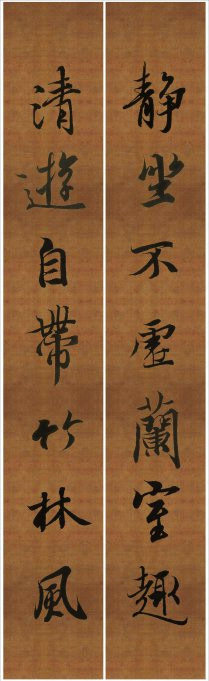 靜坐不虛蘭室趣
清遊自帶竹林風